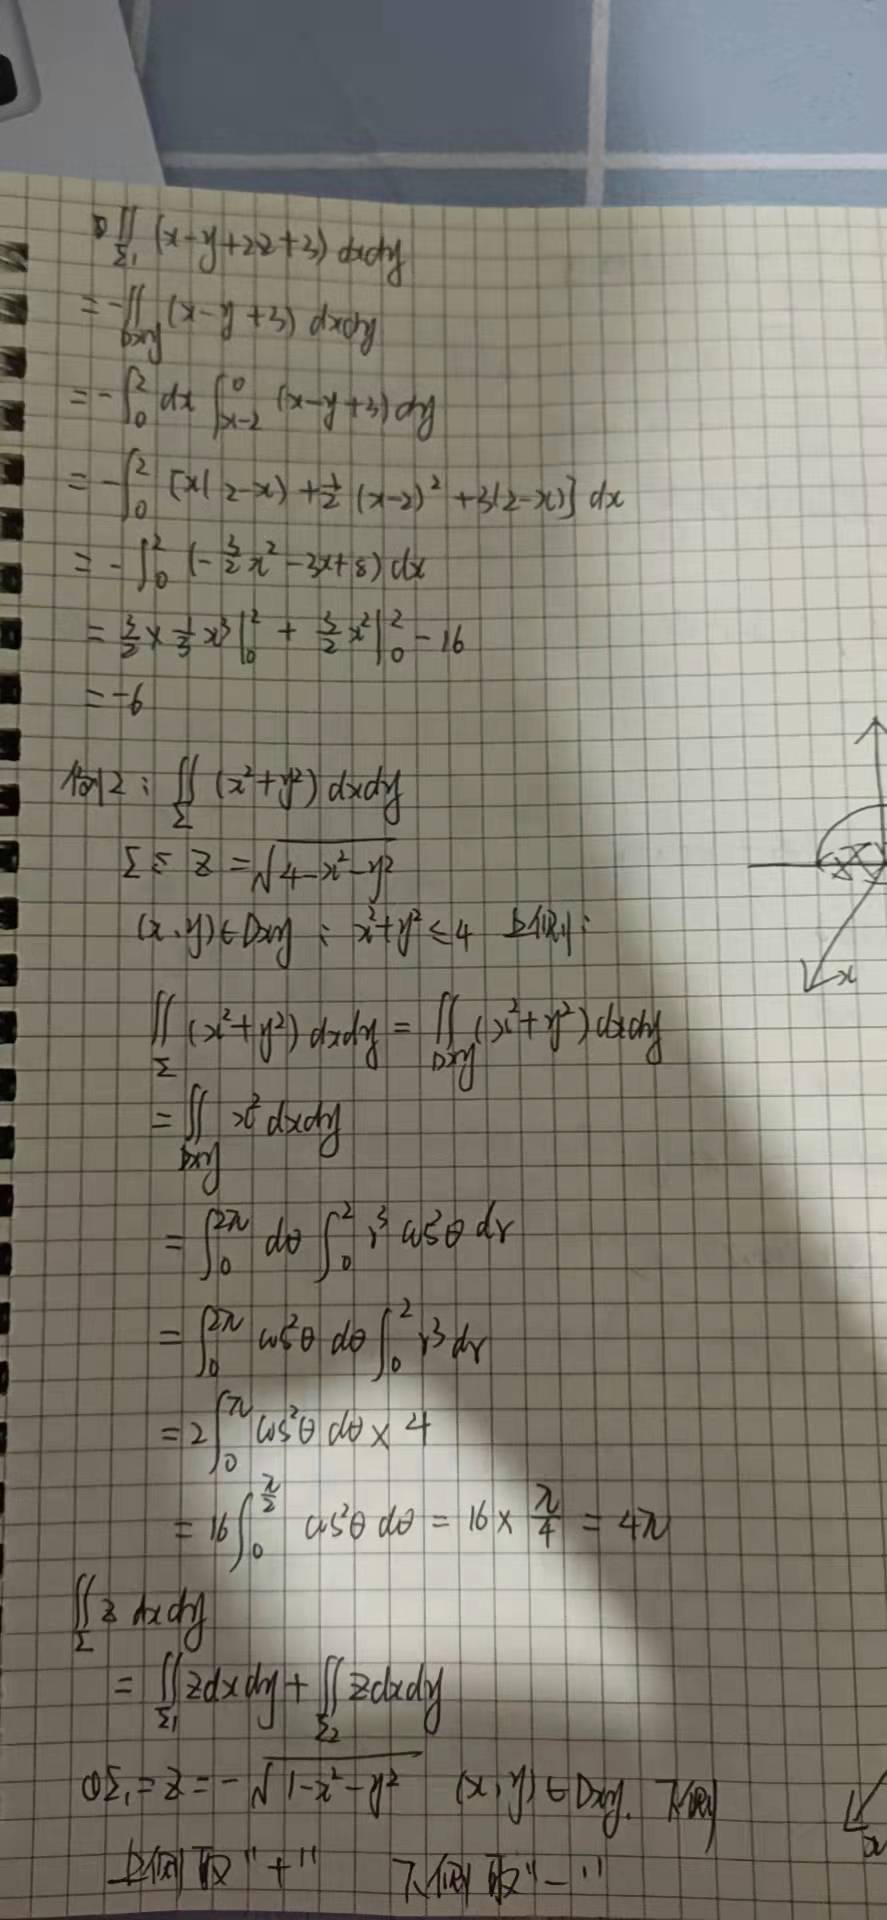 ① ∬_Σ₁ (x-y+2z+3) dxdy
= -∬_Dxy (x-y+3) dxdy
= -∫₀² dx ∫_{x-2}^0 (x-y+3) dy
= -∫₀² [x(2-x) + ½(x-2)² + 3(2-x)] dx
= -∫₀² (-3/2 x² - 3x + 8) dx
= 3/2 × 1/3 x³|₀² + 3/2 x²|₀² - 16
= -6
例2: ∬_Σ (x²+y²) dxdy
Σ: z = √(4-x²-y²)
(x,y)∈Dxy: x²+y² ≤ 4 上侧;
∬_Σ (x²+y²) dxdy = ∬_Dxy (x²+y²) dxdy
= ∬_Dxy x² dxdy
x
= ∫₀^{2π} dθ ∫₀² r³ cos²θ dr
= ∫₀^{2π} cos²θ dθ ∫₀² r³ dr
= 2∫₀^π cos²θ dθ × 4
= 16∫₀^{π/2} cos²θ dθ = 16 × π/4 = 4π
∬_Σ z dxdy
= ∬_Σ₁ z dxdy + ∬_Σ₂ z dxdy
① Σ₁: z = -√(1-x²-y²) (x,y)∈Dxy. 下侧
x
上侧取"+" 下侧取"-"